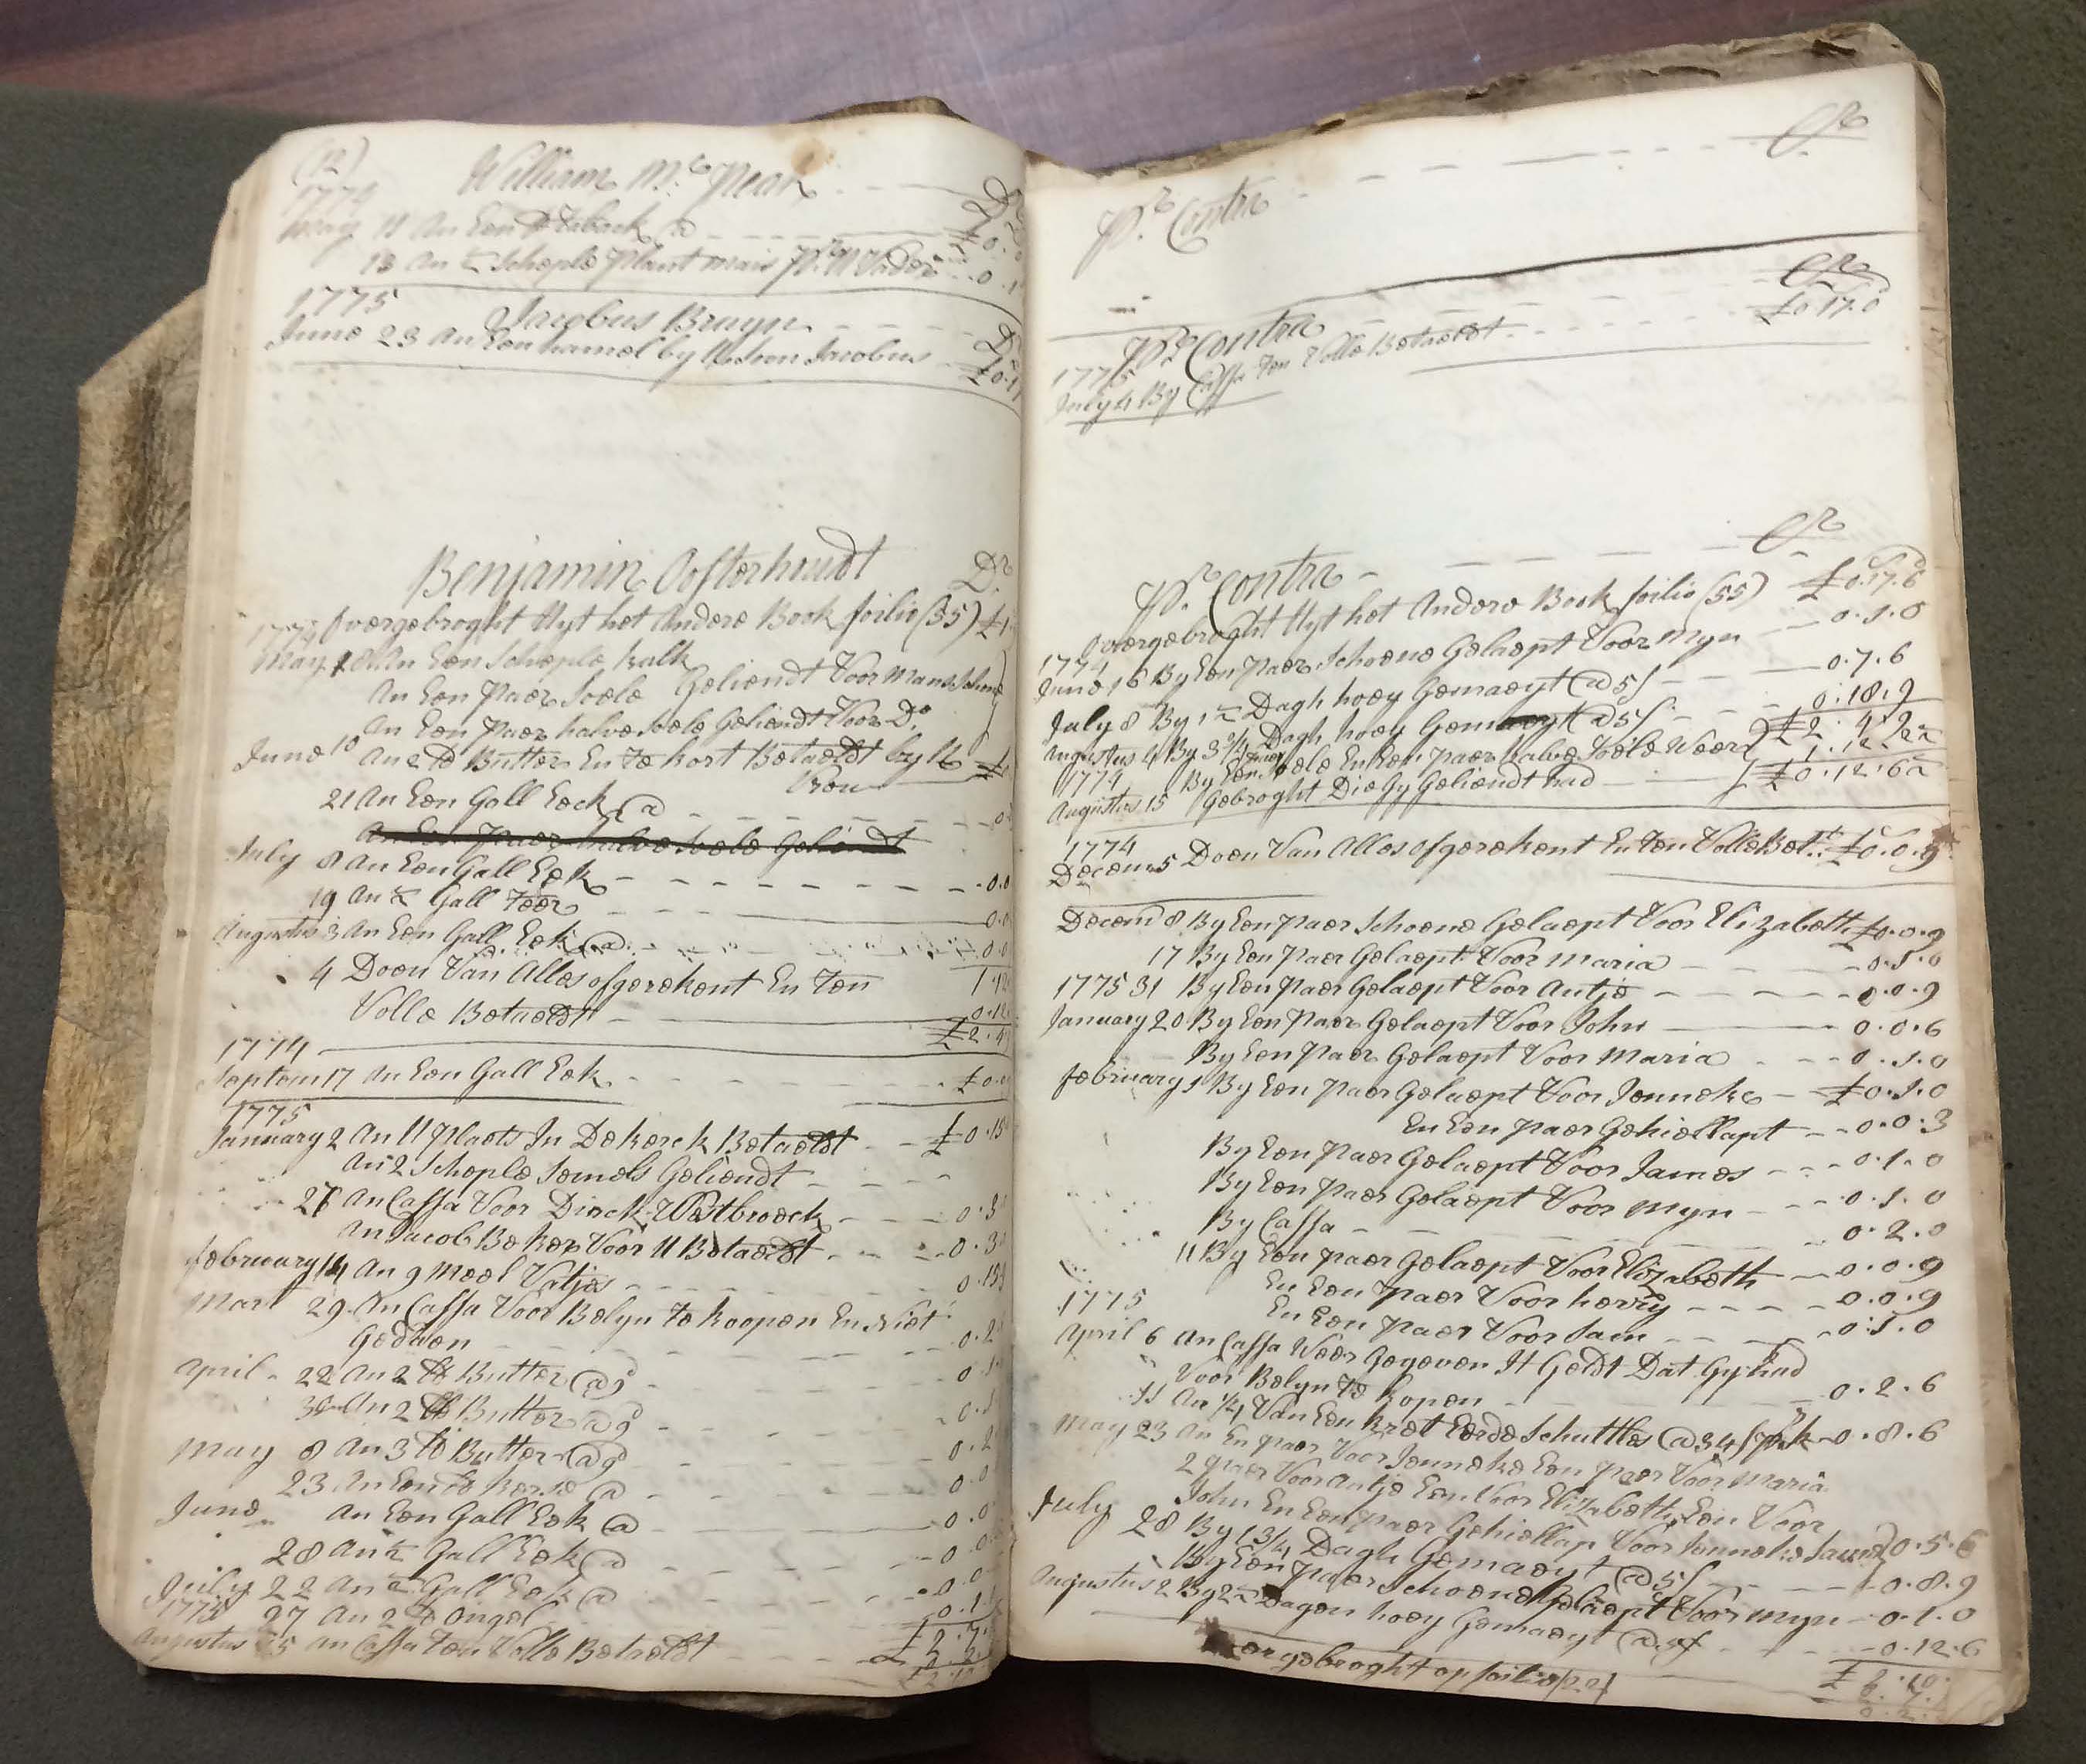 (12)
William Mc
1774 Dr
May 11 An Een @ £0.
13 An ½ Scheple Plant mais 0.1
1775 Jacobus Bruyn Dr
June 23 An Een hamel by Uw Son Jacobus £0.17
Benjamin Oosterhoudt Dr
1774 Overgebroght Uyt het Andere Book foilio (55) £1
May 28 An Een Scheple kalk
An Een Paer Soele Geliendt Voor Mans Schoene
An Een Paer halve Soele Geliendt Voor Do
June 10 An 2 lb Butter En te kort Betaeldt by U £0
Vrou
21 An Een Gall Eeck @ 0
An Een Paer halve Soele Geliendt
July 8 An Een Gall Eek 0.0
19 An ½ Gall Teer 0.0
Augustus 3 An Een Gall Eek @ 0.0
4 Doen Van Alles afgerekent En Ten 1.12
Volle Betaeldt 0.12
£2.4
1774
Septem 17 An Een Gall Eek £0.
1775
January 2 An U Plaets In De kerck Betaeldt £0.15
An 2 Scheple Semels Geliendt
An Cassa Voor Dirck Wistbroeck 0.3
An Jacob Beker Voor U Betaeldt 0.3
February 14 An 9 Meel Vatjes 0.13
Mart 29 An Cassa Voor Belyn te koopen En Niet
Gedaen 0.2
April 22 An 2 lb Butter @ 9d 0.1
An 2 lb Butter @ 9d 0.1
May 8 An 3 lb Butter @ 9d 0.2
23 An Een lb kerse @ 0.0
June An Een Gall Eek @ 0.0
28 An ½ Gall Eek @ 0.0
July 22 An ½ Gall Eek @ 0.0
1775 27 An 2 lb 0.1
£2.7
Augustus 15 An Cassa Ten Volle Betaeldt 2.
Pr Contra Cr
Pr Contra Cr
1775 £0.17.0
July 4 By Cassa Ten Volle Betaeldt
Pr Contra Cr
Overgebroght Uyt het Andere Book foilio (55) £0.17.6
1774
June 16 By Een Paer Schoene Gelaept Voor Myn 0.1.0
July 8 By 1½ Dagh hoey Gemaeyt @ 5/ 0.7.6
Augustus 4 By 3¾ Dagh hoey Gemaeyt @ 5/ 0.18.9
1774 By Een Paer Soele En Een paer halve Soele Weer £2.4.9½
Augustus 15 Gebroght Die Gy Geliendt had £0.12.6½
1774
Decem 5 Doen Van Alles afgerekent En Ten Volle Bet £0.0.9
Decem 8 By Een Paer Schoene Gelaept Voor Elizabeth £0.0.9
17 By Een Paer Gelaept Voor Maria 0.1.0
1775 31 By Een Paer Gelaept Voor Antje 0.0.9
January 20 By Een Paer Gelaept Voor John 0.0.6
By Een Paer Gelaept Voor Maria 0.1.0
February 1 By Een Paer Gelaept Voor Jenneke £0.1.0
En Een Paer Gehiellapt 0.0.3
By Een Paer Gelaept Voor James 0.1.0
By Een Paer Gelaept Voor Myn 0.1.0
By Cassa 0.2.0
11 By Een paer Gelaept Voor Elizabeth 0.0.9
En Een Paer Voor herry 0.0.9
1775 En Een Paer Voor Sam 0.1.0
April 6 An Cassa Weer Gegeven It Geldt Dat Gy had
Voor Belyn Te kopen 0.2.6
11 An ¼ Van Een Eerde Schuttles @ 34/ 0.8.6
May 23 An En paer Voor Jenneke Een Paer Voor Maria
2 Paer Voor Antje Een Voor Elizabeth Een Voor
John En Een paer Gehiellap Voor Jenneke 0.5.6
July 28 By 1¾ Dagh Gemaeyt @ 5/ 0.8.9
By Een Paer Schoene Gelaept Voor Myn 0.1.0
Augustus 2 By 2½ Dagen hoey Gemaeyt @ 5/ 0.12.6
gebroght op foilio (22) £2.10